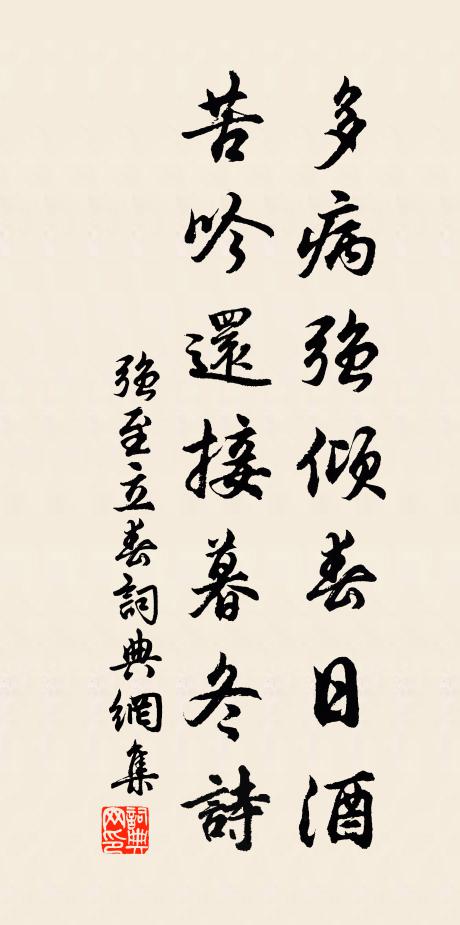 多病強傾春日酒
苦吟還接暮冬詩
強至立春詞典網集
詞典网印